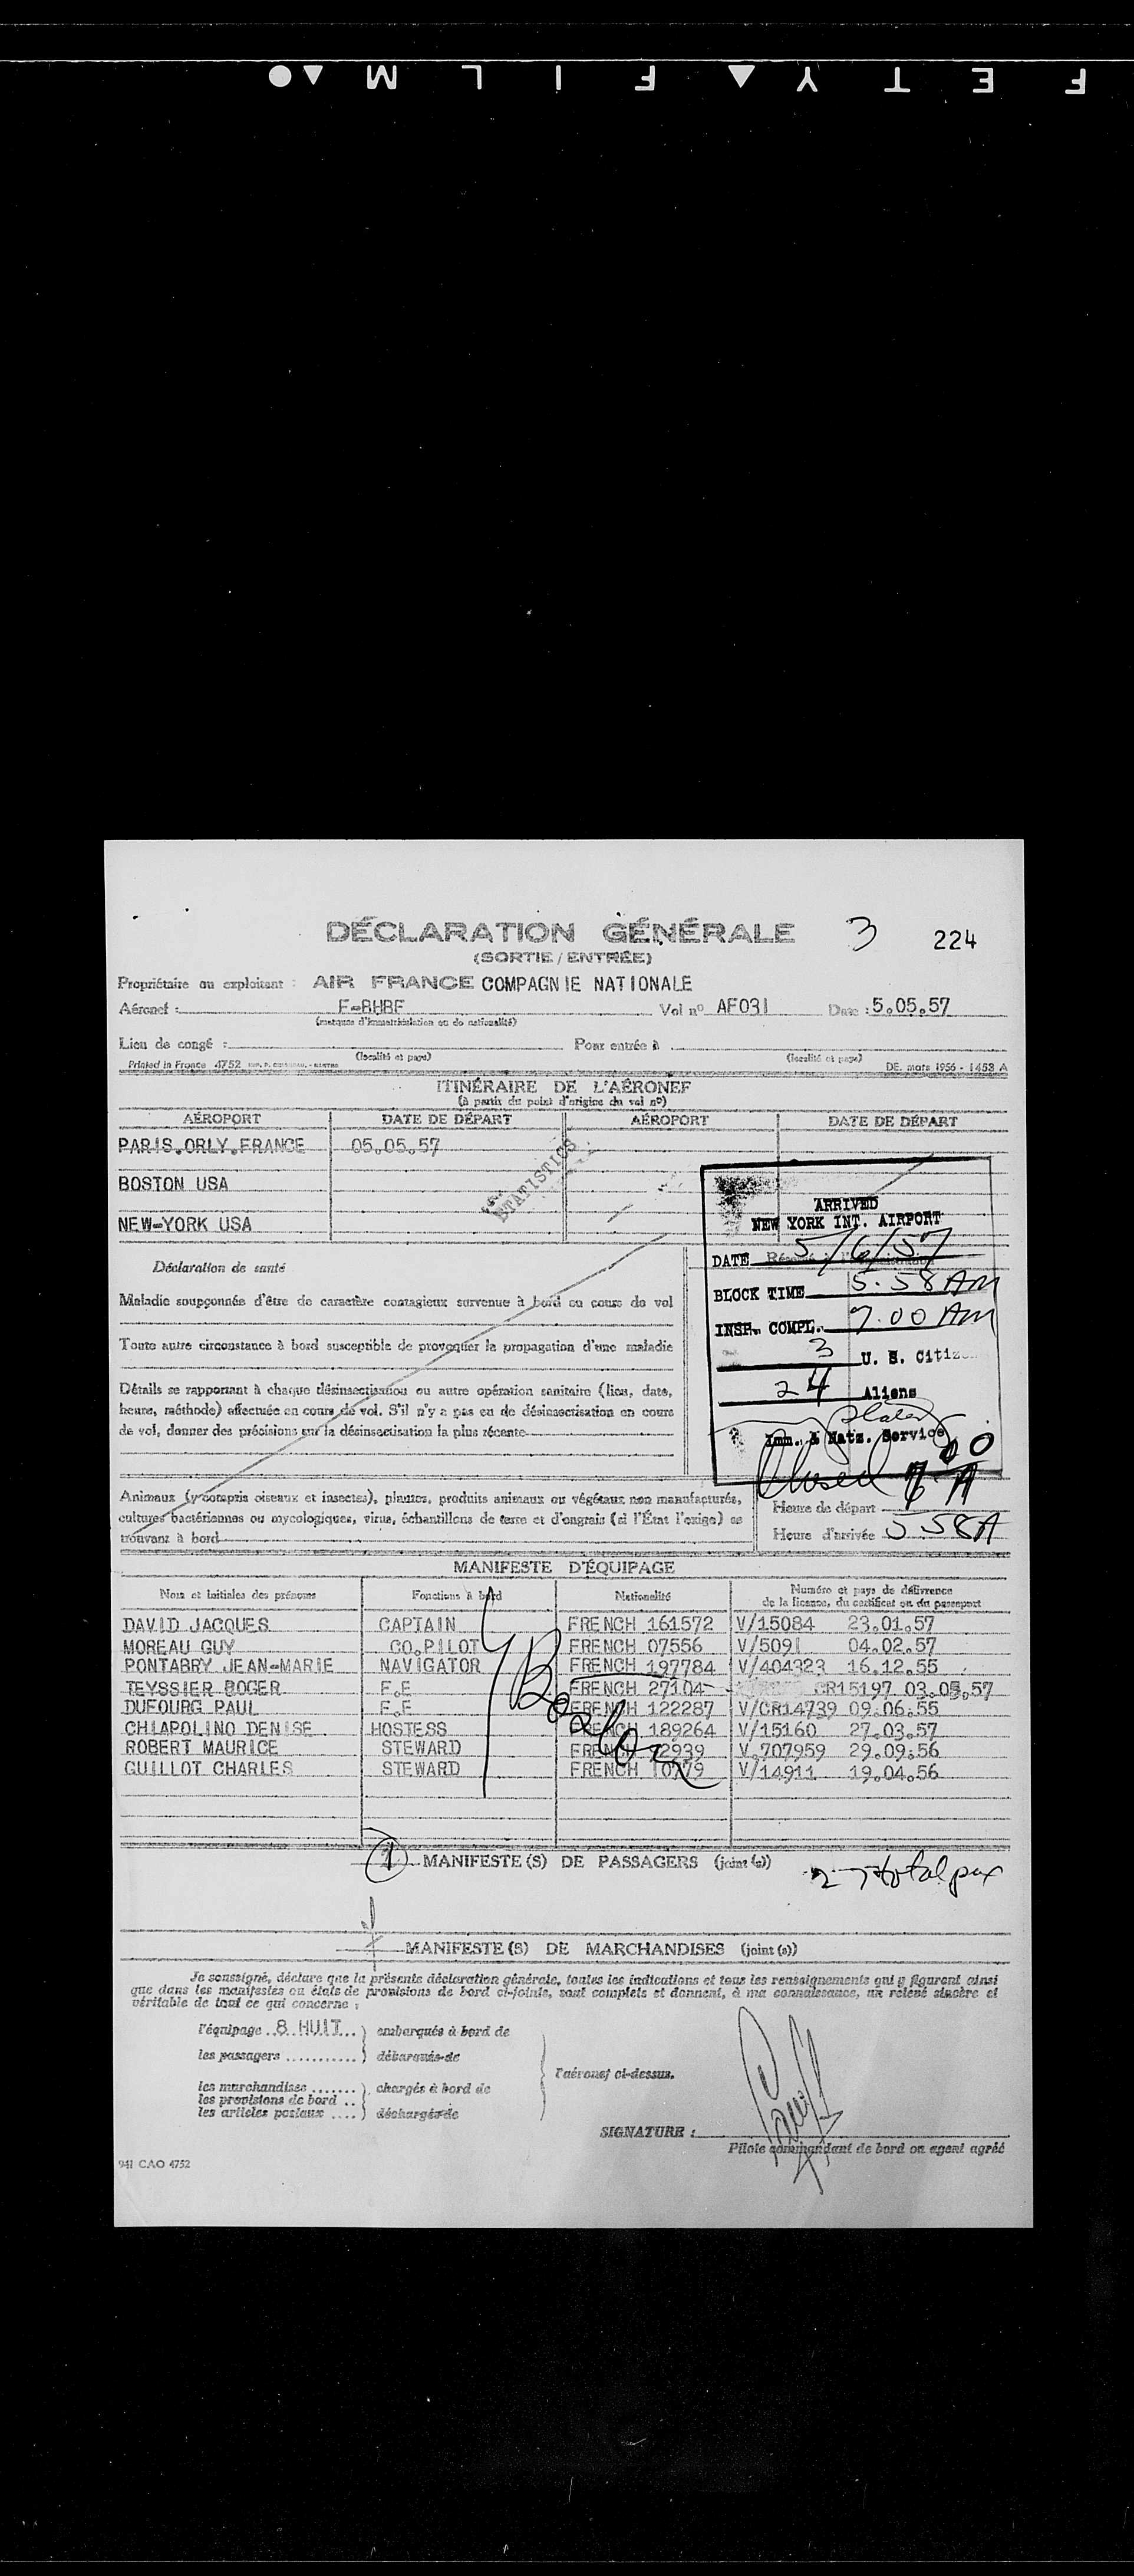 SAFETY FILM
DÉCLARATION GÉNÉRALE 3 224
(SORTIE / ENTRÉE)
Propriétaire ou exploitant : AIR FRANCE COMPAGNIE NATIONALE
Aéronef : F-BHBF Vol nº AF031 Date : 5.05.57
(marques d'immatriculation ou de nationalité)
Lieu de congé : Pour entrée à
(localité et pays) (localité et pays)
Printed in France 4752 DE. mars 1956 - 1453 A
ITINÉRAIRE DE L'AÉRONEF
(à partir du point d'origine du vol nº)
AÉROPORT DATE DE DÉPART AÉROPORT DATE DE DÉPART
PARIS.ORLY.FRANCE 05.05.57
BOSTON USA
NEW-YORK USA
STATISTICS
ARRIVED
NEW YORK INT. AIRPORT
DATE 5/6/57
BLOCK TIME 5.58 AM
INSP. COMPL. 7.00 AM
3 U. S. Citiz
24 Aliens
Imm. & Natz. Service
Closed 7 00 A
Déclaration de santé
Maladie soupçonnée d'être de caractère contagieux survenue à bord au cours du vol
Toute autre circonstance à bord susceptible de provoquer la propagation d'une maladie
Détails se rapportant à chaque désinsectisation ou autre opération sanitaire (lieu, date,
heure, méthode) affectuée en cours de vol. S'il n'y a pas eu de désinsectisation en cours
de vol, donner des précisions sur la désinsectisation la plus récente
Animaux (y compris oiseaux et insectes), plantes, produits animaux ou végétaux non manufacturés,
cultures bactériennes ou mycologiques, virus, échantillons de terre et d'engrais (si l'État l'exige) se
trouvant à bord
Heure de départ
Heure d'arrivée 5 58A
MANIFESTE D'ÉQUIPAGE
Nom et initiales des prénoms Fonctions à bord Nationalité Numéro et pays de délivrance
de la licence, du certificat ou du passeport
DAVID JACQUES CAPTAIN FRENCH 161572 V/15084 23.01.57
MOREAU GUY CO.PILOT FRENCH 07556 V/5091 04.02.57
PONTABRY JEAN-MARIE NAVIGATOR FRENCH 197784 V/404323 16.12.55
TEYSSIER ROGER F.E FRENCH 27104 CR15197 03.05.57
DUFOURG PAUL F.E FRENCH 122287 V/CR14739 09.06.55
CHIAPOLINO DENISE HOSTESS FRENCH 189264 V/15160 27.03.57
ROBERT MAURICE STEWARD FRENCH 2939 V.707959 29.09.56
GUILLOT CHARLES STEWARD FRENCH 10779 V/14911 19.04.56
Boston
1 MANIFESTE (S) DE PASSAGERS (joint (s))
27 total pax
MANIFESTE (S) DE MARCHANDISES (joint (s))
Je soussigné, déclare que la présente déclaration générale, toutes les indications et tous les renseignements qui y figurent ainsi
que dans les manifestes ou états de provisions de bord ci-joints, sont complets et donnent, à ma connaissance, un relevé sincère et
véritable de tout ce qui concerne :
l'équipage 8 HUIT ) embarqués à bord de
les passagers ) débarqués de
l'aéronef ci-dessus.
les marchandises ) chargés à bord de
les provisions de bord
les articles postaux ) déchargés de
SIGNATURE :
Pilote commandant de bord ou agent agréé
941 CAO 4752